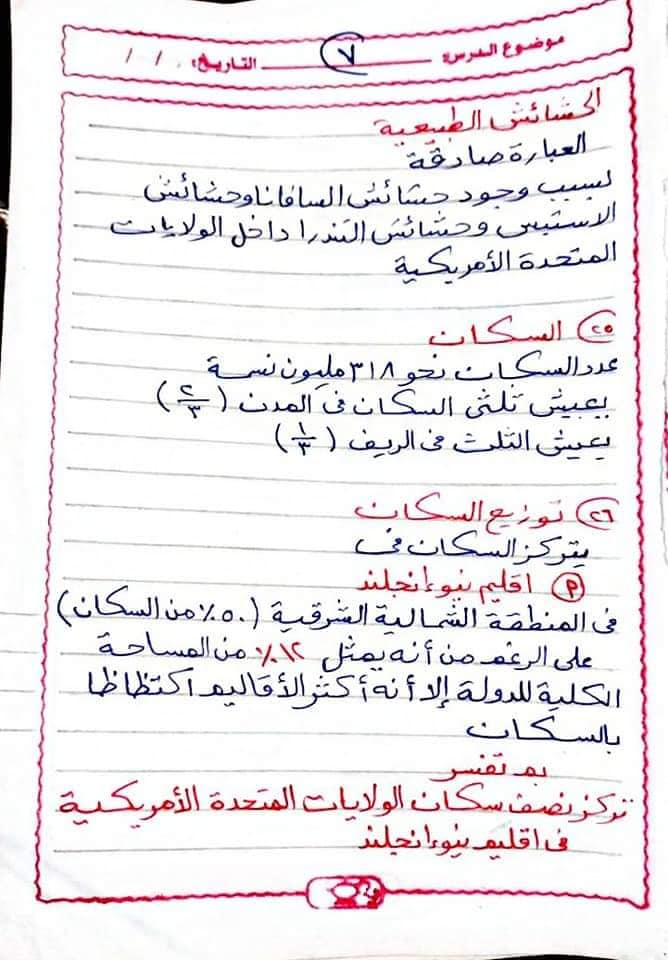 موضوع الدرس: ٧ التاريخ: / /
الحشائش الطبيعية
العبارة صادقة
لسبب وجود حشائش السافانا وحشائش
الاستبس وحشائش التندرا داخل الولايات
المتحدة الأمريكية
٢٥ السكان
عدد السكان نحو ٣١٨ مليون نسمة
يعيش ثلثى السكان فى المدن (٢/٣)
يعيش الثلث فى الريف (١/٣)
٢٦ توزيع السكان
يتركز السكان فى
أ اقليم نيوانجلند
فى المنطقة الشمالية الشرقية (٥٠٪ من السكان)
على الرغم من أنه يمثل ١٢٪ من المساحة
الكلية للدولة إلا أنه أكثر الأقاليم اكتظاظا
بالسكان
بم تفسر
تركز نصف سكان الولايات المتحدة الأمريكية
فى اقليم نيوانجلند